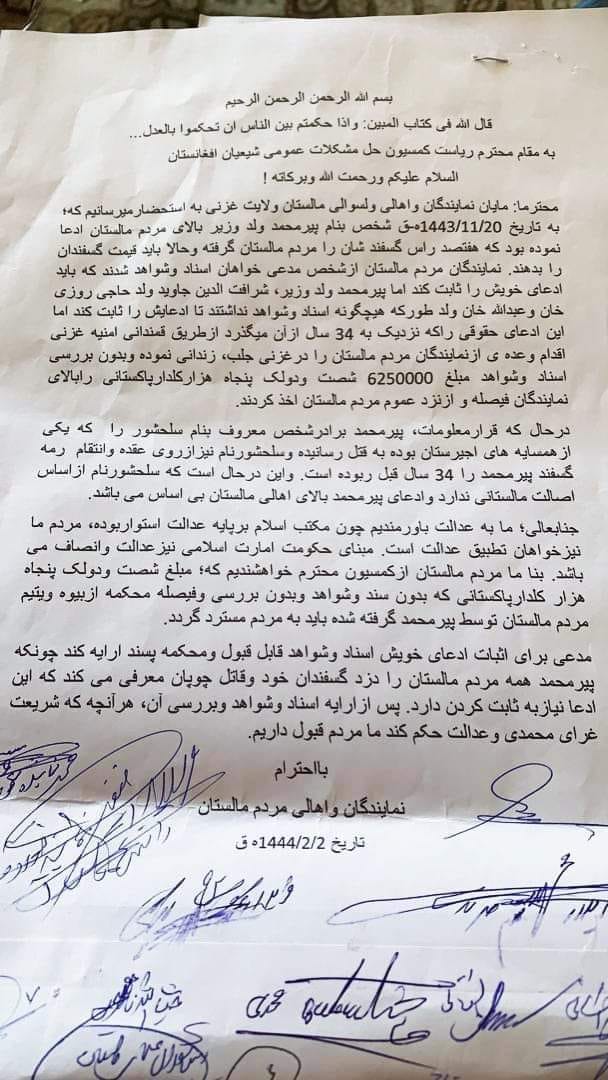 بسم الله الرحمن الرحمن الرحیم
قال الله فی کتاب المبین: واذا حکمتم بین الناس ان تحکموا بالعدل...
به مقام محترم ریاست کمسیون حل مشکلات عمومی شیعیان افغانستان
السلام علیکم ورحمت الله وبرکاته !
محترما: مایان نمایندگان واهالی ولسوالی مالستان ولایت غزنی به استحضارمیرسانیم که؛
به تاریخ 1443/11/20ه-ق شخص بنام پیرمحمد ولد وزیر بالای مردم مالستان ادعا
نموده بود که هفتصد راس گسفند شان را مردم مالستان گرفته وحالا باید قیمت گسفندان
را بدهند. نمایندگان مردم مالستان ازشخص مدعی خواهان اسناد وشواهد شدند که باید
ادعای خویش را ثابت کند اما پیرمحمد ولد وزیر، شرافت الدین جاوید ولد حاجی روزی
خان وعبدالله خان ولد طورکه هیچگونه اسناد وشواهد نداشتند تا ادعایش را ثابت کند اما
این ادعای حقوقی راکه نزدیک به 34 سال ازآن میگذرد ازطریق قمندانی امنیه غزنی
اقدام وعده ی ازنمایندگان مردم مالستان را درغزنی جلب، زندانی نموده وبدون بررسی
اسناد وشواهد مبلغ 6250000 شصت ودولک پنجاه هزارکلدارپاکستانی رابالای
نمایندگان فیصله و ازنزد عموم مردم مالستان اخذ کردند.
درحال که قرارمعلومات، پیرمحمد برادرشخص معروف بنام سلحشور را که یکی
ازهمسایه های اجیرستان بوده به قتل رسانیده وسلحشورنام نیزازروی عقده وانتقام رمه
گسفند پیرمحمد را 34 سال قبل ربوده است. واین درحال است که سلحشورنام ازاساس
اصالت مالستانی ندارد وادعای پیرمحمد بالای اهالی مالستان بی اساس می باشد.
جنابعالی؛ ما به عدالت باورمندیم چون مکتب اسلام برپایه عدالت استواربوده، مردم ما
نیزخواهان تطبیق عدالت است. مبنای حکومت امارت اسلامی نیزعدالت وانصاف می
باشد. بنا ما مردم مالستان ازکمسیون محترم خواهشندیم که؛ مبلغ شصت ودولک پنجاه
هزار کلدارپاکستانی که بدون سند وشواهد وبدون بررسی وفیصله محکمه ازبیوه ویتیم
مردم مالستان توسط پیرمحمد گرفته شده باید به مردم مسترد گردد.
مدعی برای اثبات ادعای خویش اسناد وشواهد قابل قبول ومحکمه پسند ارایه کند چونکه
پیرمحمد همه مردم مالستان را دزد گسفندان خود وقاتل چوپان معرفی می کند که این
ادعا نیازبه ثابت کردن دارد. پس ازارایه اسناد وشواهد وبررسی آن، هرآنچه که شریعت
غرای محمدی وعدالت حکم کند ما مردم قبول داریم.
بااحترام
نمایندگان واهالی مردم مالستان
تاریخ 1444/2/2ه ق